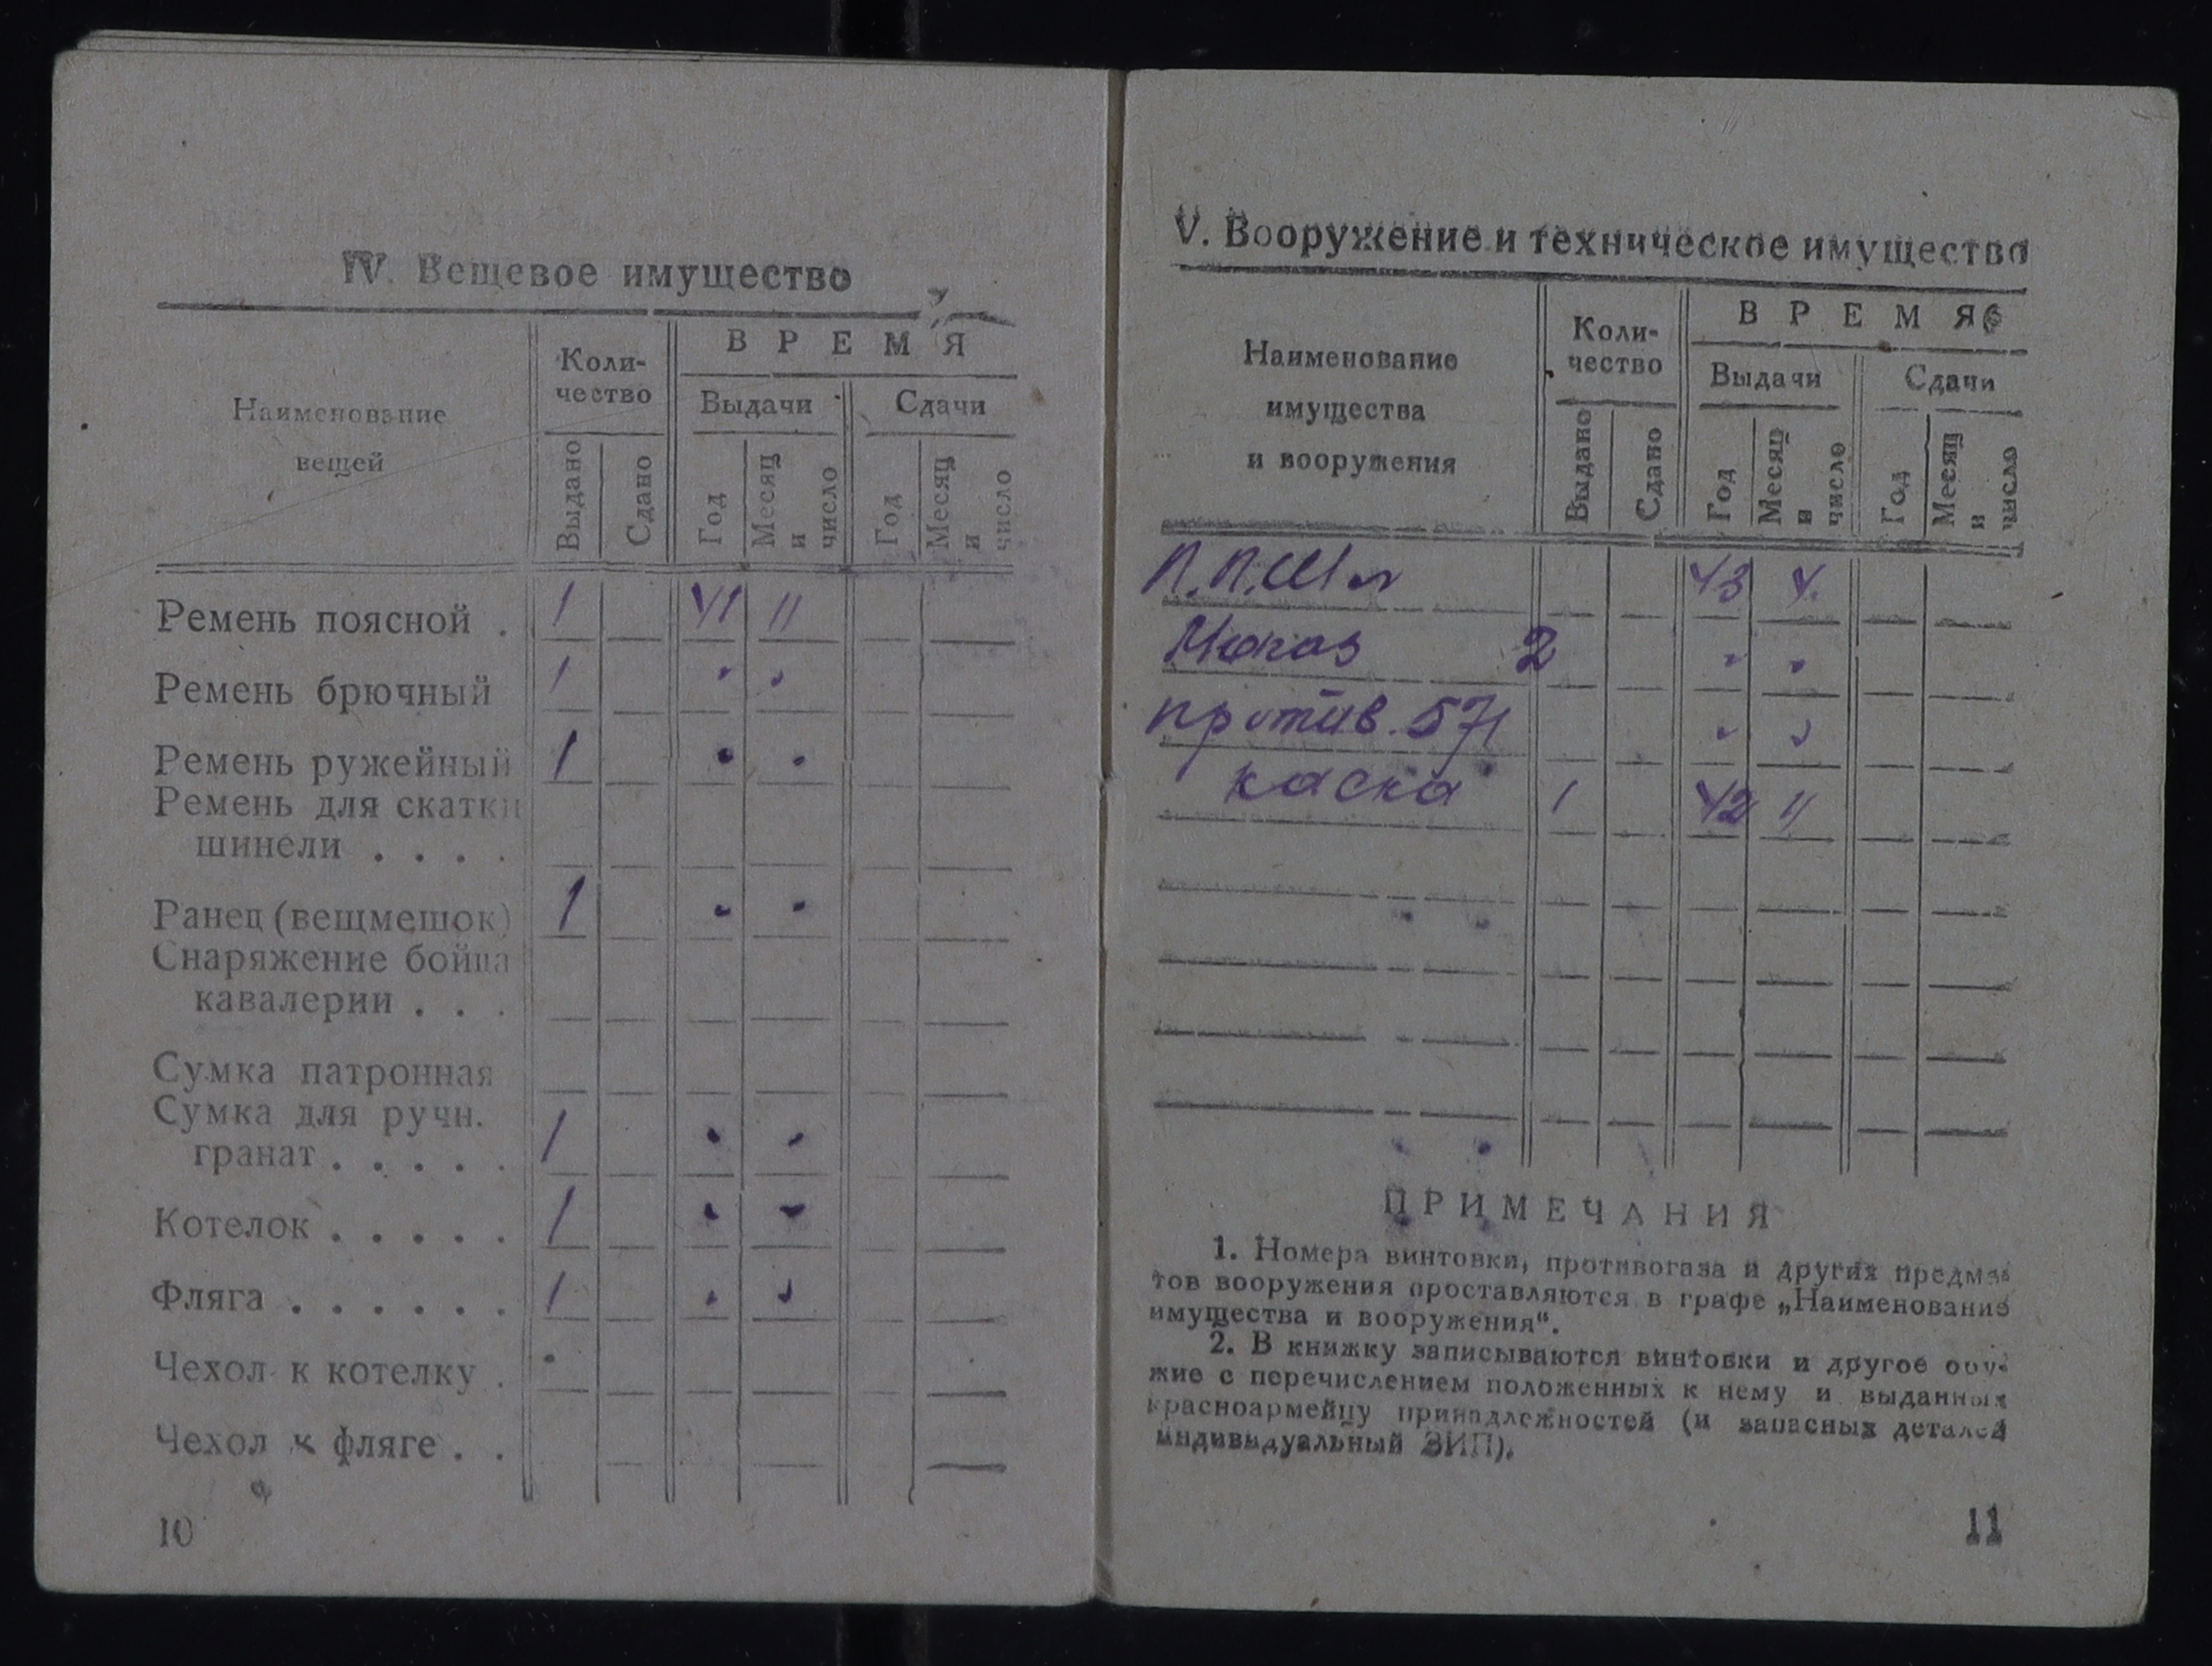 IV. Вещевое имущество
Наименование
вещей
Коли-
чество
ВРЕМЯ
Выдачи
Сдачи
Выдано
Сдано
Год
Месяц
и
число
Год
Месяц
и
число
Ремень поясной . 1 41 11
Ремень брючный 1 " "
Ремень ружейный 1 " "
Ремень для скатки
шинели . . . .
Ранец (вещмешок) 1 " "
Снаряжение бойца
кавалерии . . .
Сумка патронная
Сумка для ручн.
гранат . . . . . 1 " "
Котелок . . . . . 1 " "
Фляга . . . . . . 1 " "
Чехол к котелку .
Чехол к фляге . .
10
V. Вооружение и техническое имущество
Наименование
имущества
и вооружения
Коли-
чество
ВРЕМЯ
Выдачи
Сдачи
Выдано
Сдано
Год
Месяц
и
число
Год
Месяц
и
число
П.П.Ш 43 4.
2 " "
против. 571 " "
каска 1 42 11
ПРИМЕЧАНИЯ
1. Номера винтовки, противогаза и других предме-
тов вооружения проставляются в графе „Наименование
имущества и вооружения“.
2. В книжку записываются винтовки и другое ору-
жие с перечислением положенных к нему и выданных
красноармейцу принадлежностей (и запасных деталей
индивидуальный ЗИП).
11